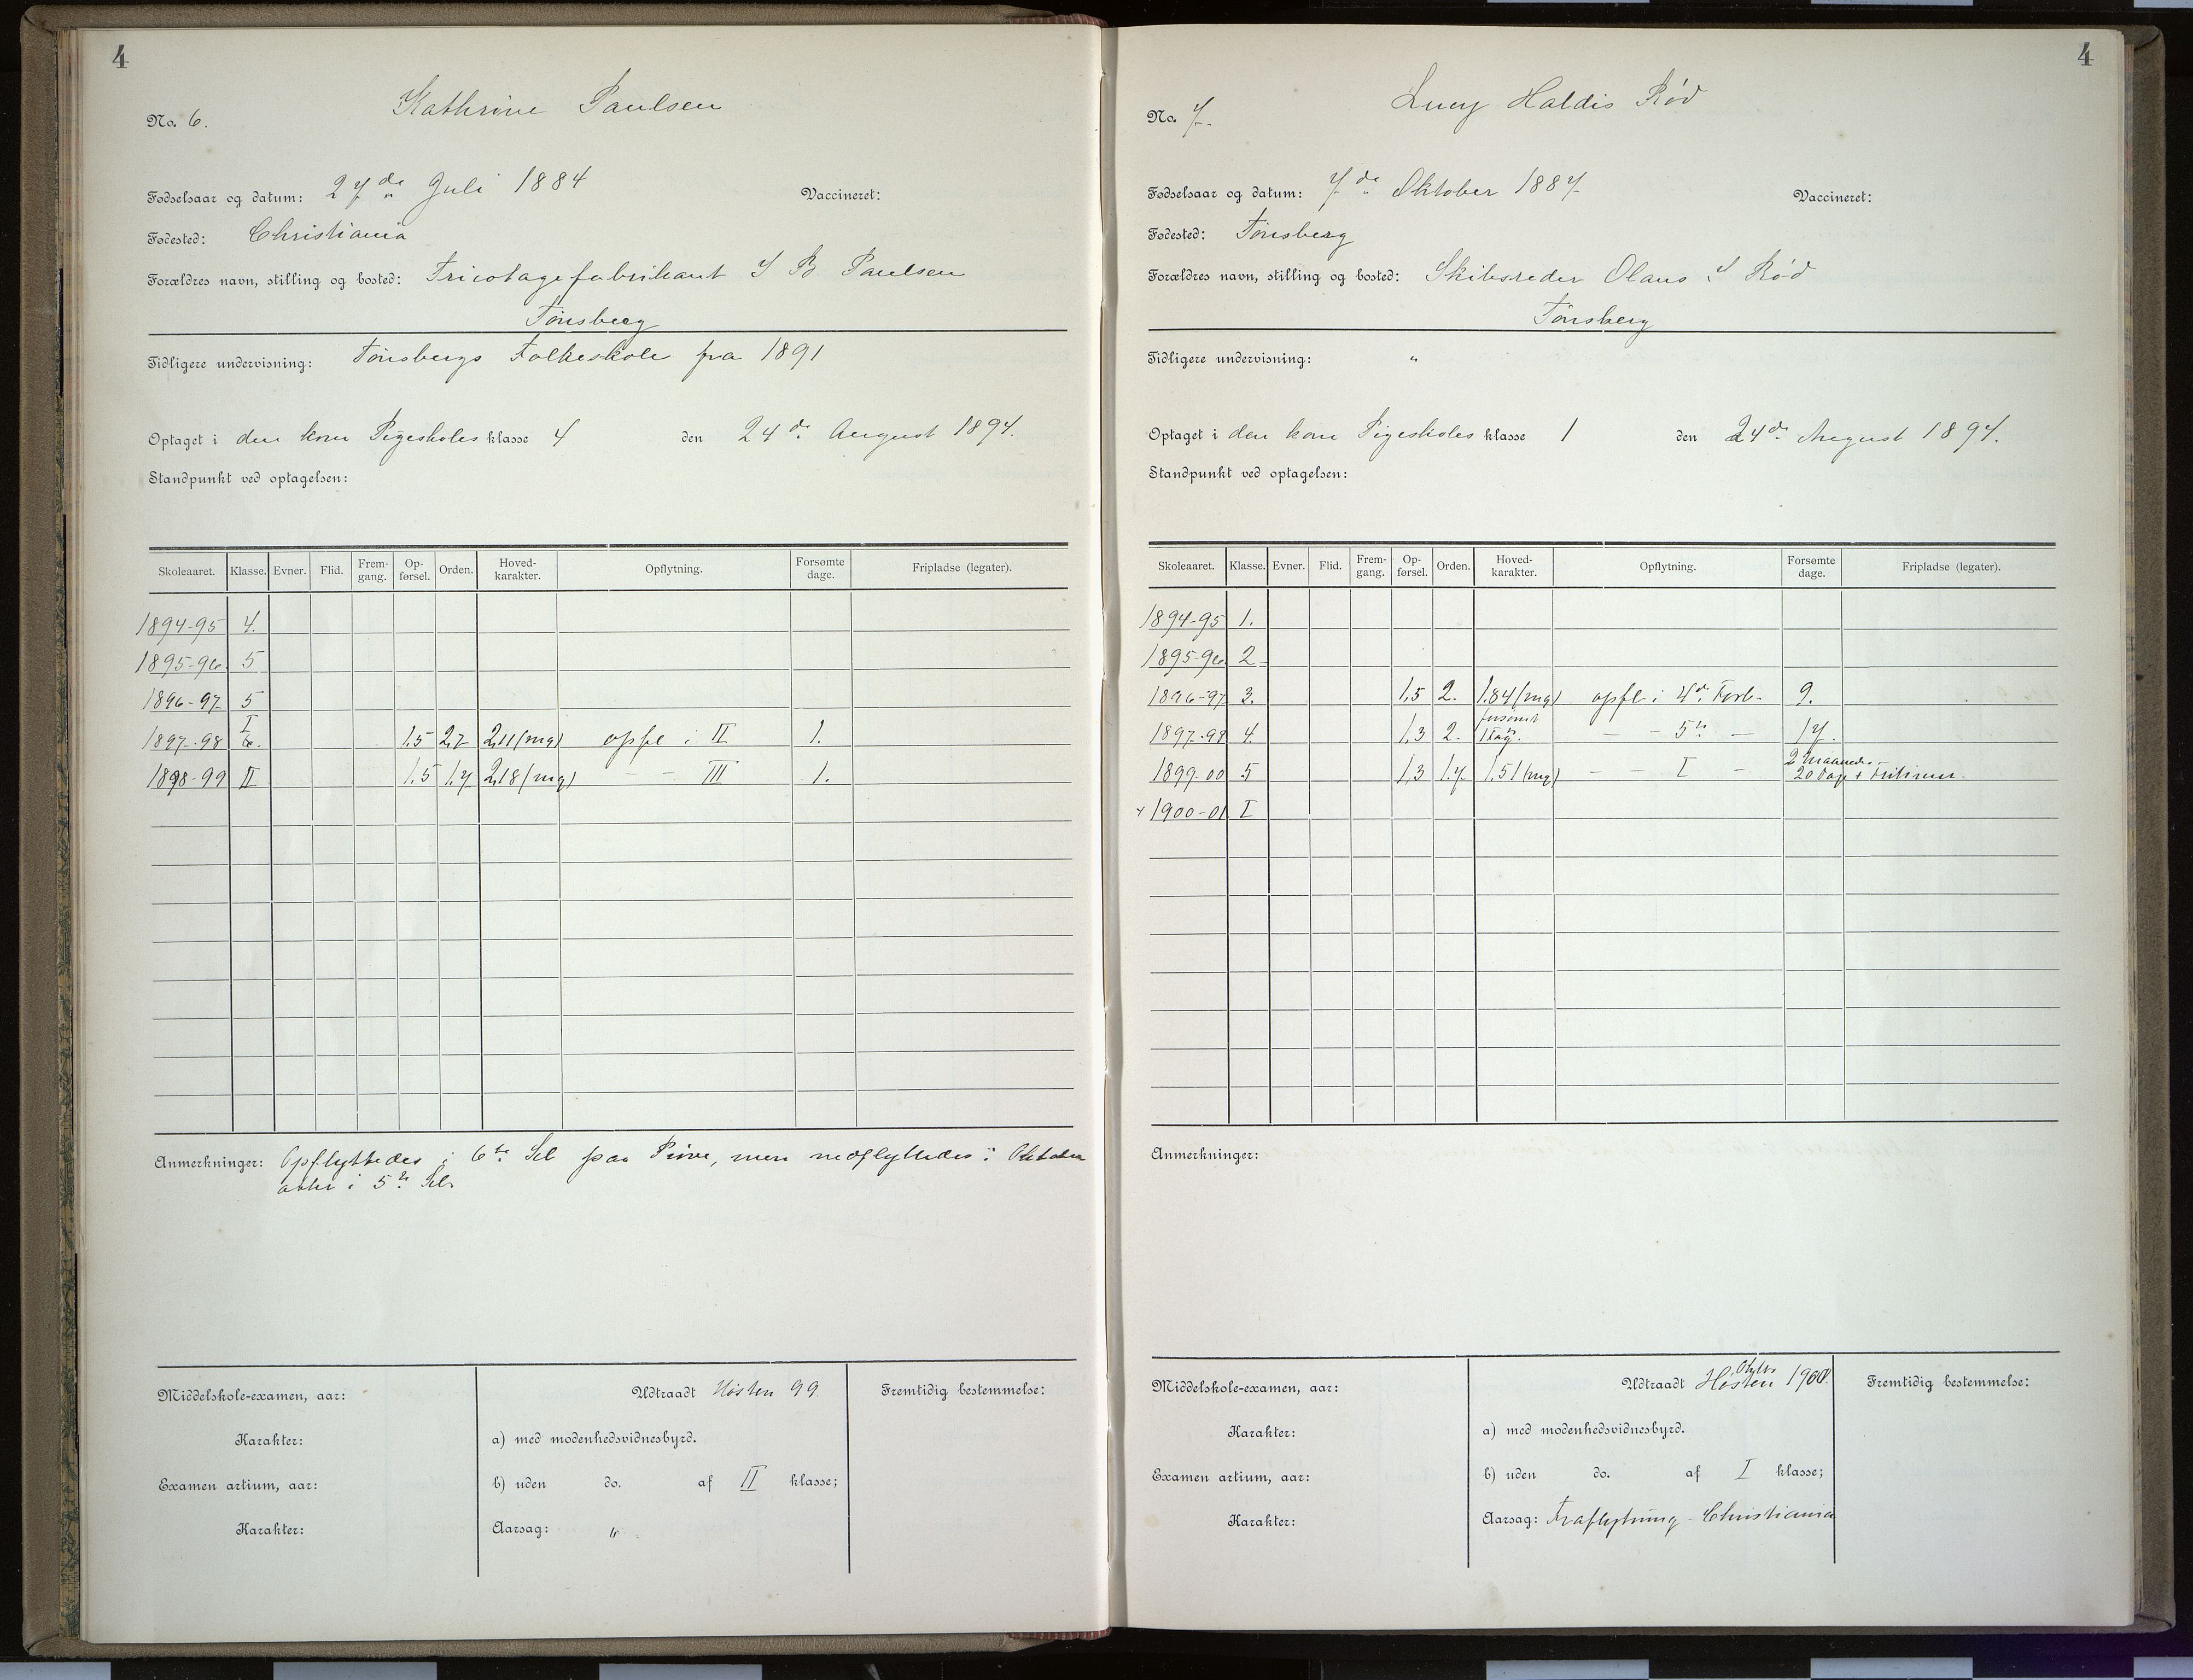 4
Kathrine Paulsen
No. 6.
Fødselsaar og datum: 27de Juli 1884 Vaccineret:
Fødested: Christiania
Forældres navn, stilling og bosted: Tricotagefabrikant I B Paulsen
Tønsberg
Tidligere undervisning: Tønsbergs Folkeskole fra 1891
Optaget i den kom Pigeskoles klasse 4 den 24de August 1894.
Standpunkt ved optagelsen:
Skoleaaret. Klasse. Evner. Flid. Frem-gang. Op-førsel. Orden. Hoved-karakter. Opflytning. Forsømte dage. Fripladse (legater).
1894-95 4.
1895-96 5
1896-97 5
1897-98 I 6. 1.5 2,7 2,11 (mg) opfl i II 1.
1898-99 II 1.5 1.7 2,18 (mg) – – III 1.
Anmerkninger: Opflyttedes i 6te Kl paa Prøve, men nedflyttedes i Oktober
atter i 5te Kl.
Middelskole-examen, aar: Udtraadt Høsten 99. Fremtidig bestemmelse:
Karakter: a) med modenhedsvidnesbyrd.
Examen artium, aar: b) uden do. af II klasse;
Karakter: Aarsag: "
4
Lucy Haldis Rød
No. 7.
Fødselsaar og datum: 7de Oktober 1887. Vaccineret:
Fødested: Tønsberg
Forældres navn, stilling og bosted: Skibsreder Olaus I Rød
Tønsberg
Tidligere undervisning: "
Optaget i den kom Pigeskoles klasse 1 den 24de August 1894.
Standpunkt ved optagelsen:
Skoleaaret. Klasse. Evner. Flid. Frem-gang. Op-førsel. Orden. Hoved-karakter. Opflytning. Forsømte dage. Fripladse (legater).
1894-95 1.
1895-96 2
1896-97 3. 1,5 2. 1.84 (mg) opfl i 4de Forb. 9.
1897-98 4. 1,3 2. forsømt – – 5te – 17.
1899-00 5 1,3 1.7. 1,51 (mg) – – I – 2 Maaneder 20 Dage + Fritimer.
1900-01 I
Anmerkninger:
Middelskole-examen, aar: Udtraadt Høsten Oktbr 1900. Fremtidig bestemmelse:
Karakter: a) med modenhedsvidnesbyrd.
Examen artium, aar: b) uden do. af I klasse;
Karakter: Aarsag: Fraflytning Christiania